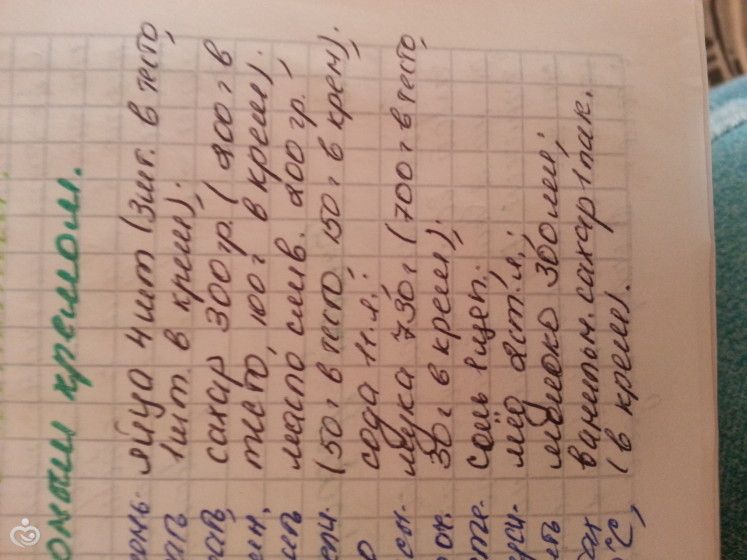 кремом.
яйца 4шт (3шт. в тесто,
1шт. в крем);
сахар 300гр. (200г в
тесто, 100г в крем);
масло слив. 200гр.
(50г в тесто, 150г в крем);
сода 1ч.л.;
мука 730г (700г в тесто,
30г в крем);
соль 1щеп.
мёд 2ст.л.;
молоко 300мл;
ванильн. сахар 1пак.
(в крем).